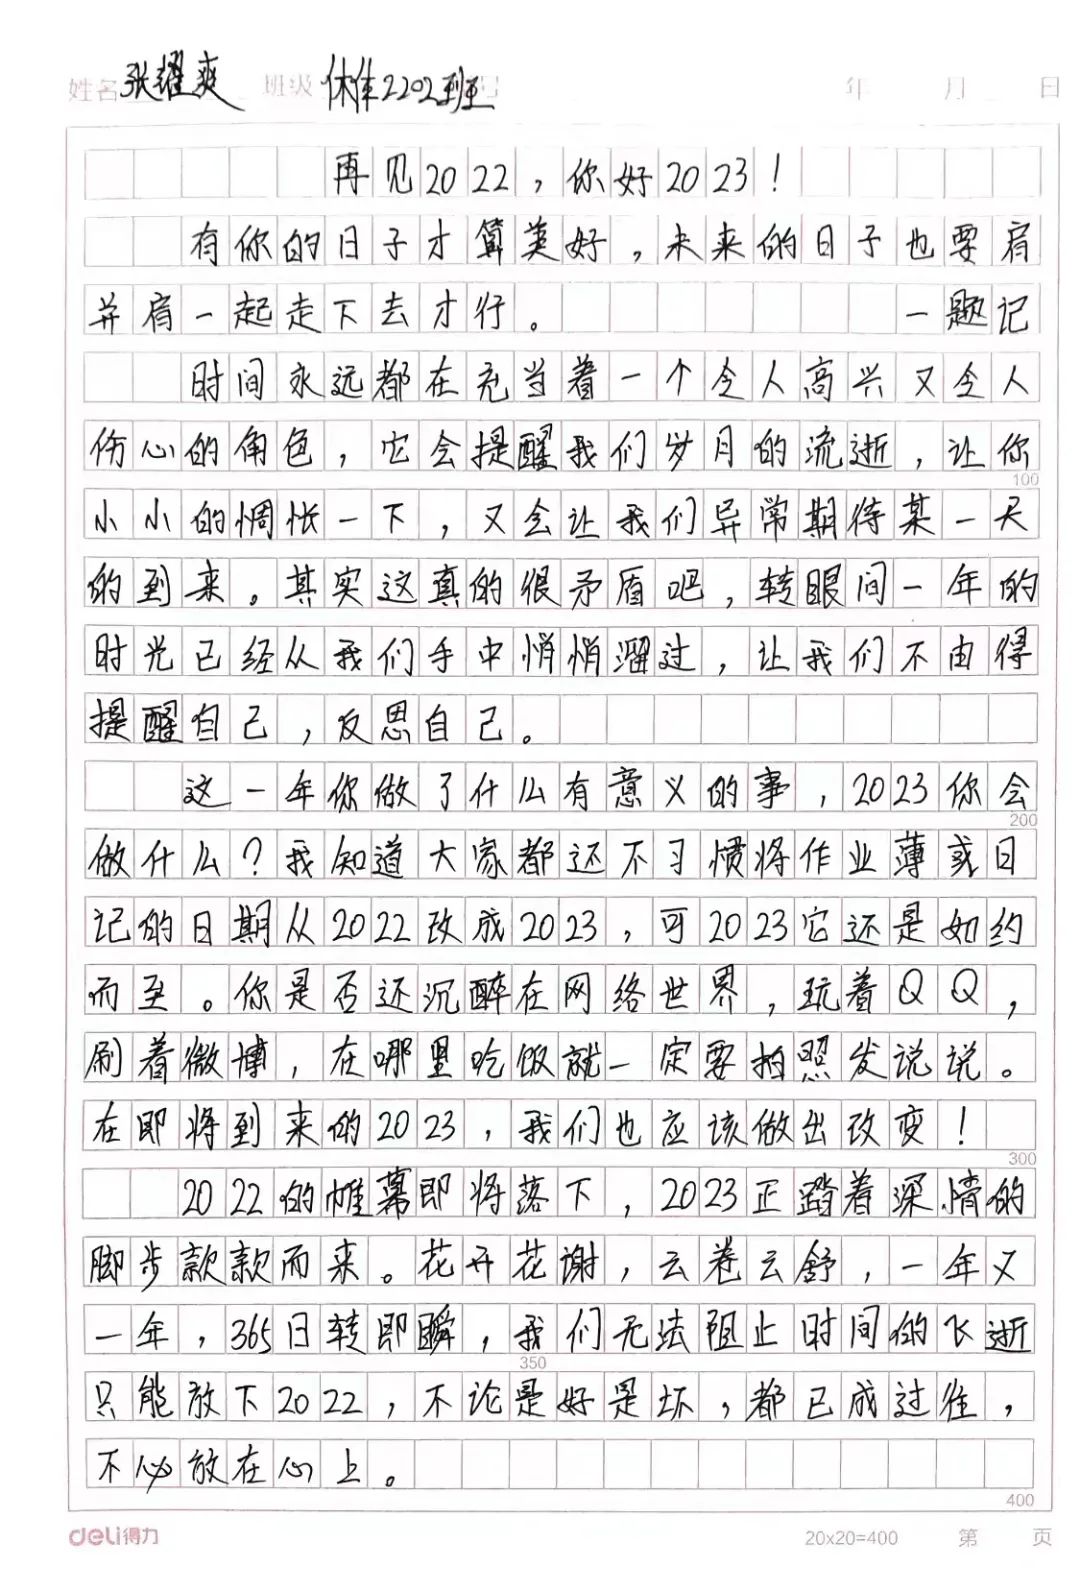 姓名 张耀爽 班级 休体2202班 号 年 月 日
再见2022，你好2023！
有你的日子才算美好，未来的日子也要肩
并肩一起走下去才行。 一题记
时间永远都在充当着一个令人高兴又令人
伤心的角色，它会提醒我们岁月的流逝，让你
100
小小的惆怅一下，又会让我们异常期待某一天
的到来。其实这真的很矛盾吧，转眼间一年的
时光已经从我们手中悄悄溜过，让我们不由得
提醒自己，反思自己。
这一年你做了什么有意义的事，2023你会
200
做什么？我知道大家都还不习惯将作业薄或日
记的日期从2022改成2023，可2023它还是如约
而至。你是否还沉醉在网络世界，玩着QQ，
刷着微博，在哪里吃饭就一定要拍照发说说。
在即将到来的2023，我们也应该做出改变！
300
2022的帷幕即将落下，2023正踏着深情的
脚步款款而来。花开花谢，云卷云舒，一年又
一年，365日转即瞬，我们无法阻止时间的飞逝
350
只能放下2022，不论是好是坏，都已成过往，
不必放在心上。
400
deli得力 20x20=400 第 页